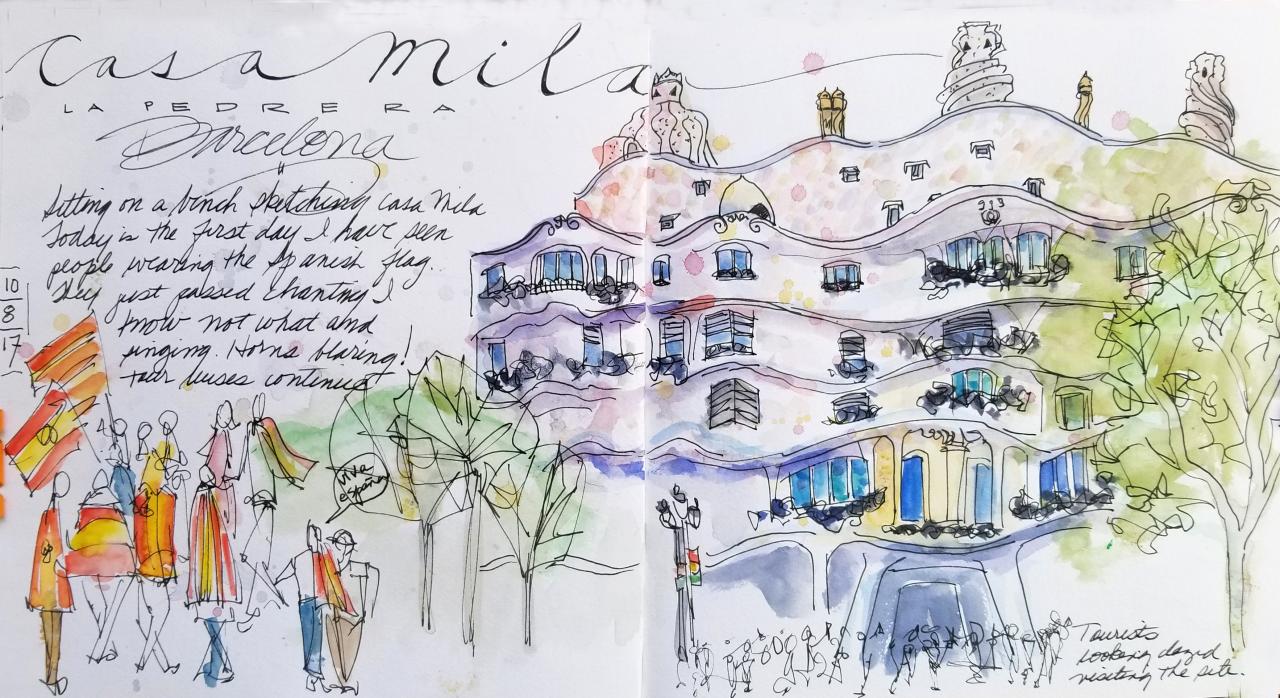 Casa Mila
LA PEDRERA
Barcelona
Sitting on a binch sketching Casa Mila
Today is the first day I have seen
people wearing the Spanish flag.
They just passed chanting I
know not what and
singing. Horns blaring!
Tour buses continue
10
8
17
Viva
españa
Tourists
looking dazed
visiting the site.